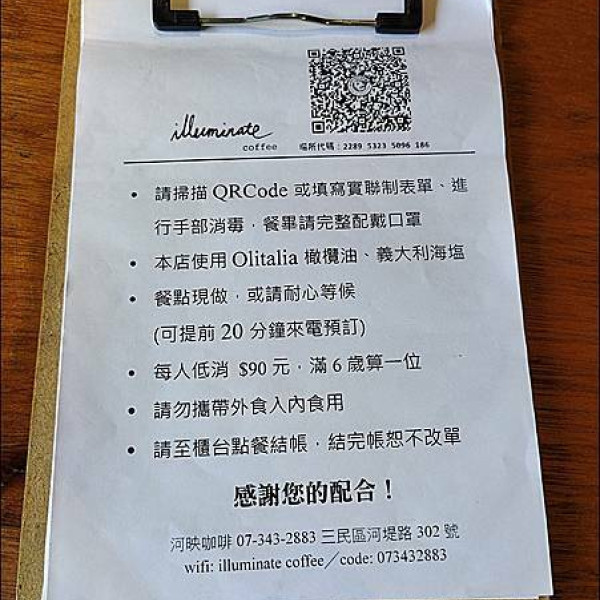 illuminate
coffee
場所代碼：2289 5323 5096 186
• 請掃描 QRCode 或填寫實聯制表單、進
行手部消毒，餐畢請完整配戴口罩
• 本店使用 Olitalia 橄欖油、義大利海塩
• 餐點現做，或請耐心等候
(可提前 20 分鐘來電預訂)
• 每人低消 $90 元，滿 6 歲算一位
• 請勿攜帶外食入內食用
• 請至櫃台點餐結帳，結完帳恕不改單
感謝您的配合！
河映咖啡 07-343-2883 三民區河堤路 302 號
wifi: illuminate coffee／code: 073432883